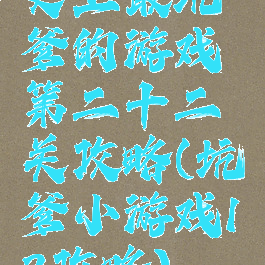 史上最坑
爹的游戏
第二十二
关攻略(坑
爹小游戏|
攻略)